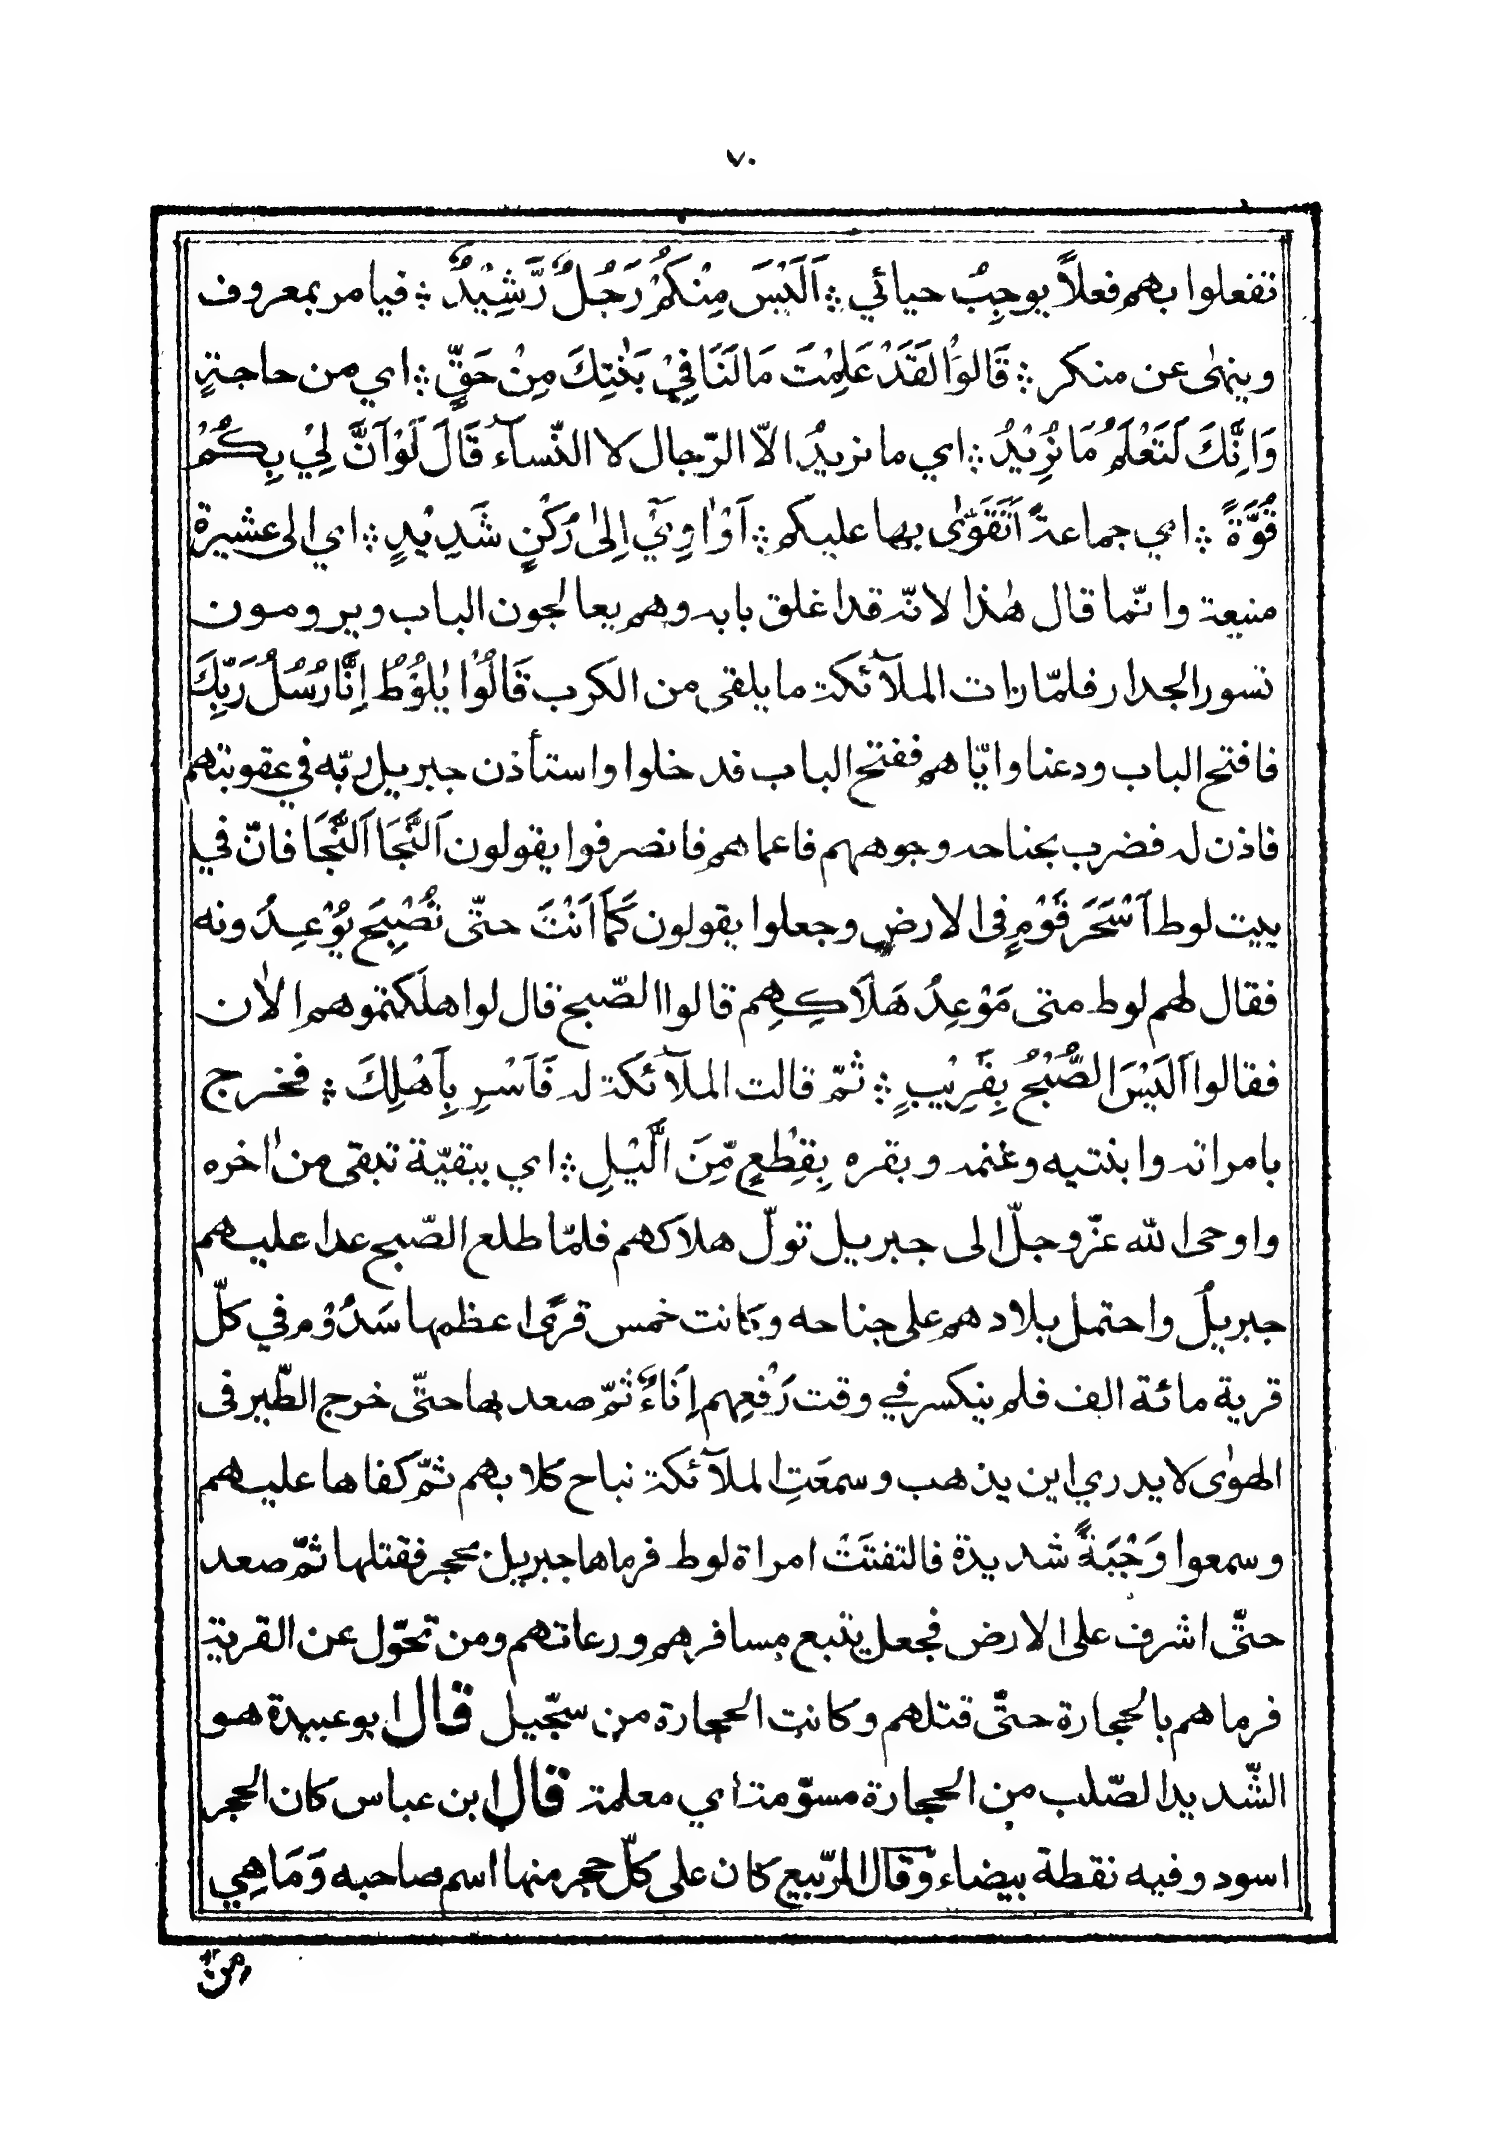 ٧٠
تفعلوا بهم فعلاً يوجِبُ حيائي ؞ اَلَيْسَ مِنْكُمْ رَجُلٌ رَّشِيْدٌ ؞ فيامر بمعروف
وينهٰى عن منكر ؞ قَالُوْا لَقَدْ عَلِمْتَ مَا لَنَا فِيْ بَنٰتِكَ مِنْ حَقٍّ ؞ اي من حاجةٍ
وَاِنَّكَ لَتَعْلَمُ مَا نُرِيْدُ ؞ اي ما نريدُ الّا الرّجال لا النّسآء قَالَ لَوْ اَنَّ لِيْ بِكُمْ
قُوَّةً ؞ اي جماعةً اَتَقَوّٰى بها عليكم ؞ اَوْ اٰوِيْٓ اِلٰى رُكْنٍ شَدِيْدٍ ؞ اي الى عشيرة
منيعة وانّما قال هٰذا لانّه قد اغلق بابه وهم يعالجون الباب ويرومون
تسور الجدار فلمّا رات الملآئكة ما يلقى من الكرب قَالُوْا يٰلُوْطُ اِنَّا رُسُلُ رَبِّكَ
فافتح الباب ودعنا وايّاهم ففتح الباب فدخلوا واستأذن جبريل ربّه في عقوبتهم
فاذن له فضرب بجناحه وجوههم فاعماهم فانصرفوا يقولون اَلنَّجَا اَلنَّجَا فانّ في
بيت لوط اَسْحَرَ قَوْمٍ فى الارض وجعلوا يقولون كَمَا اَنْتَ حتّى نُصْبِحَ يُوْعِدُونه
فقال لهم لوط متى مَوْعِدُ هَلَاكِهِم قالوا الصّبح قال لو اهلكتموهم الاٰن
فقالوا اَلَيْسَ الصُّبْحُ بِقَرِيْبٍ ؞ ثمّ قالت الملآئكة له فَاَسْرِ بِاَهْلِكَ ؞ فخرج
بامراته وابنتيه وغنمه وبقره بِقِطْعٍ مِّنَ الَّيْلِ ؞ اي ببقيّة تبقى من اٰخره
واوحى الله عزّ وجلّ الى جبريل تولّ هلاكهم فلمّا طلع الصّبح عدا عليهم
جبريلُ واحتمل بلادهم على جناحه وكانت خمس قرًى اعظمها سَدُوْم في كلّ
قرية مائة الف فلم ينكسر في وقت رَفْعِهِم اِنَاءٌ ثمّ صعد بها حتّى خرج الطّير فى
الهوٰى لا يدري اين يذهب وسمعَتِ الملآئكة نباح كلابهم ثمّ كفاها عليهم
وسمعوا وَجْبَةً شديدة فالتفتَتْ امراة لوط فرماها جبريل بحجر فقتلها ثمّ صعد
حتّى اشرف على الارض فجعل يتبع مسافرهم ورعاتهم ومن تحوّل عن القرية
فرماهم بالحجارة حتّى قتلهم وكانت الحجارة من سجّيل قال ابو عبيدة هو
الشّديد الصّلب من الحجارة مسوّمة اي معلمة قال ابن عباس كان الحجر
اسود وفيه نقطة بيضاء وقال الرّبيع كان على كلّ حجر منها اسم صاحبه وَمَا هِي
من